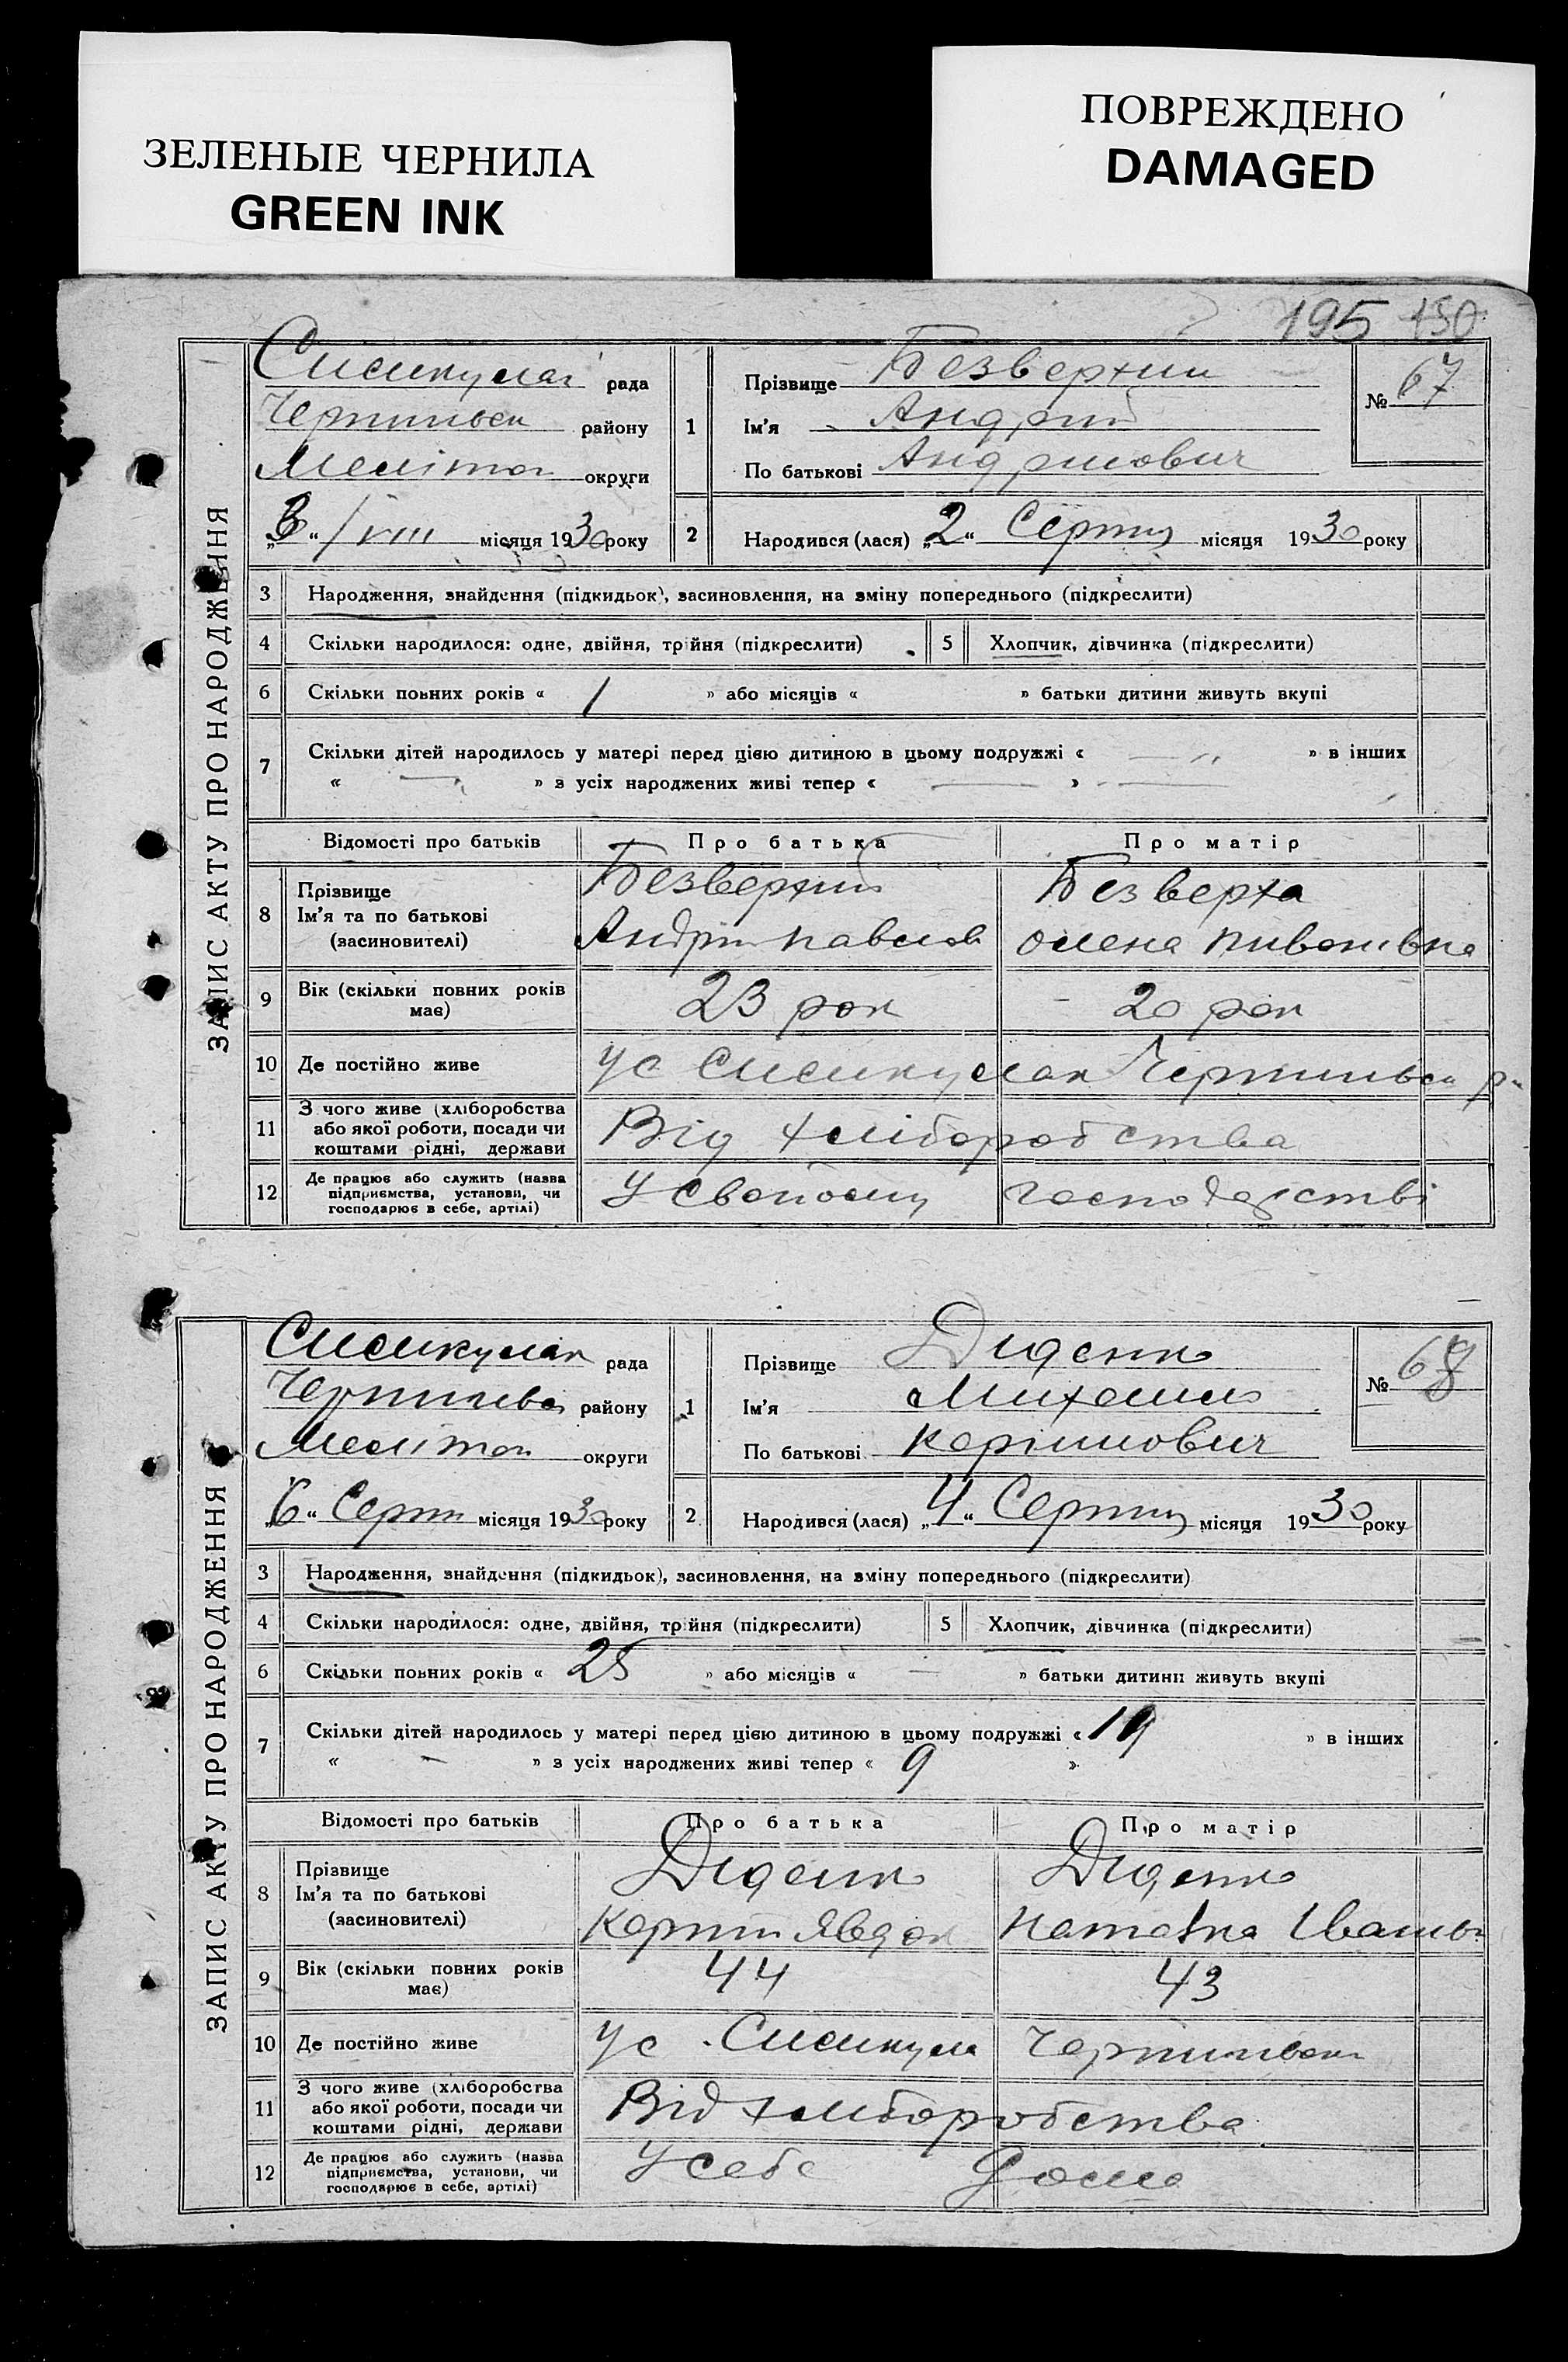 ЗЕЛЕНЫЕ ЧЕРНИЛА
GREEN INK
ПОВРЕЖДЕНО
DAMAGED
195 150
ЗАПИС АКТУ ПРО НАРОДЖЕННЯ
рада
району
Меліто округи
„ “ /VIII місяця 1930 року
1
Прізвище Безверхий
Ім'я Андрій
По батькові Андрійович
№ 67
2 Народився (лася) „2“ Серпня місяця 1930 року
3 Народження, знайдення (підкидьок), засиновлення, на зміну попереднього (підкреслити)
4 Скільки народилося: одне, двійня, трійня (підкреслити) 5 Хлопчик, дівчинка (підкреслити)
6 Скільки повних років « 1 » або місяців « » батьки дитини живуть вкупі
7 Скільки дітей народилось у матері перед цією дитиною в цьому подружжі « — » в інших
« — » з усіх народжених живі тепер « — »
Відомості про батьків Про батька Про матір
8 Прізвище Безверхий Безверха
Ім'я та по батькові
(засиновителі) Андрій Павлов Олена
9 Вік (скільки повних років має) 23 рок 20 рок
10 Де постійно живе У с
11 З чого живе (хліборобства
або якої роботи, посади чи
коштами рідні, держави Від хліборобства
12 Де працює або служить (назва
підприємства, установи, чи
господарює в себе, артілі) У свойому господарстві
ЗАПИС АКТУ ПРО НАРОДЖЕННЯ
рада
району
Меліто округи
„6“ Серпн місяця 1930 року
1
Прізвище Діденко
Ім'я Михайло
По батькові
№ 68
2 Народився (лася) „4“ Серпня місяця 1930 року
3 Народження, знайдення (підкидьок), засиновлення, на зміну попереднього (підкреслити)
4 Скільки народилося: одне, двійня, трійня (підкреслити) 5 Хлопчик, дівчинка (підкреслити)
6 Скільки повних років « 25 » або місяців « — » батьки дитини живуть вкупі
7 Скільки дітей народилось у матері перед цією дитиною в цьому подружжі « » в інших
« — » з усіх народжених живі тепер « 9 »
Відомості про батьків Про батька Про матір
8 Прізвище Діденко Діденко
Ім'я та по батькові
(засиновителі)
9 Вік (скільки повних років має) 44 43
10 Де постійно живе У с
11 З чого живе (хліборобства
або якої роботи, посади чи
коштами рідні, держави Від хліборобства
12 Де працює або служить (назва
підприємства, установи, чи
господарює в себе, артілі) У себе дома